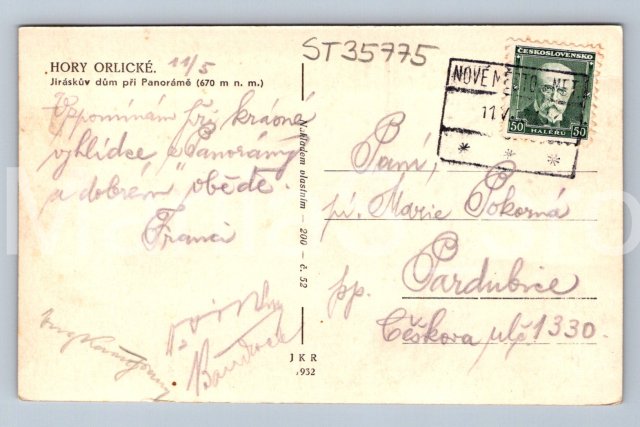 HORY ORLICKÉ. 11/5
Jiráskův dům při Panorámě (670 m n. m.)
Vzpomínám při krásné
vyhlídce z Panorámy
a dobrém obědě.
Franci
Nakladem vlastním - 200 - č. 52
J K R
1932
ST35775
NOVÉ MĚSTO N. MET.
11 V
* * *
ČESKOSLOVENSKO
50 50
HALÉŘŮ
Paní,
pí. Marie Pokorná
pp. Pardubice
Ceškova ulč 1330.